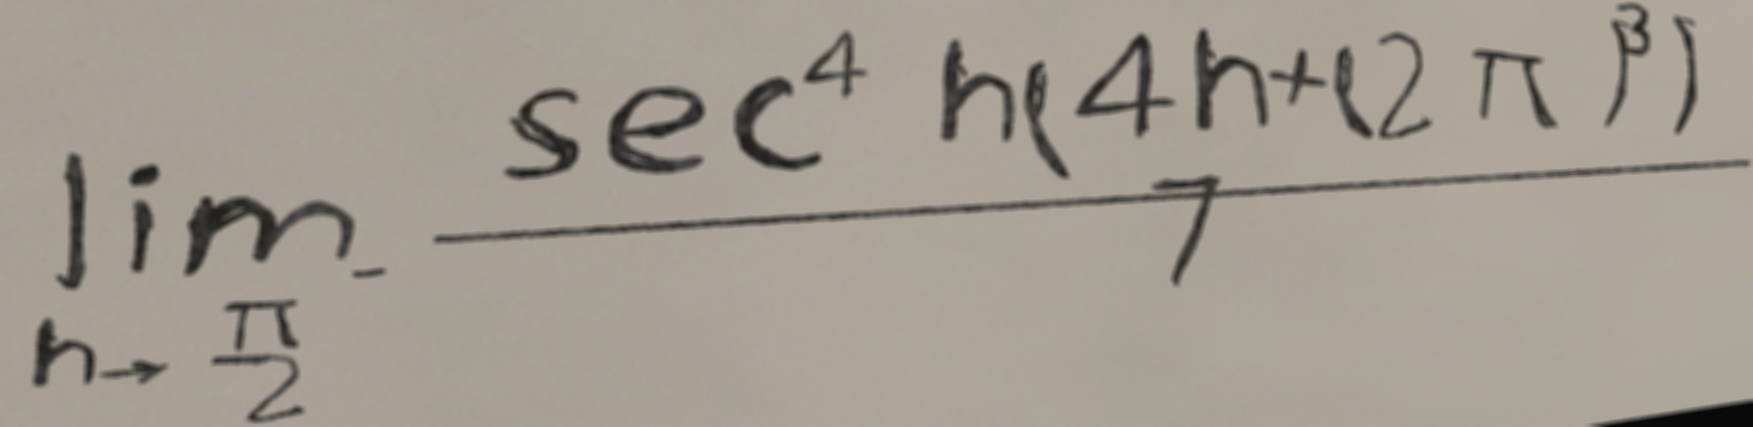 \lim_{n \to \frac{\pi}{2}^-} \frac{\sec^4 n(4n+(2\pi)^3)}{7}